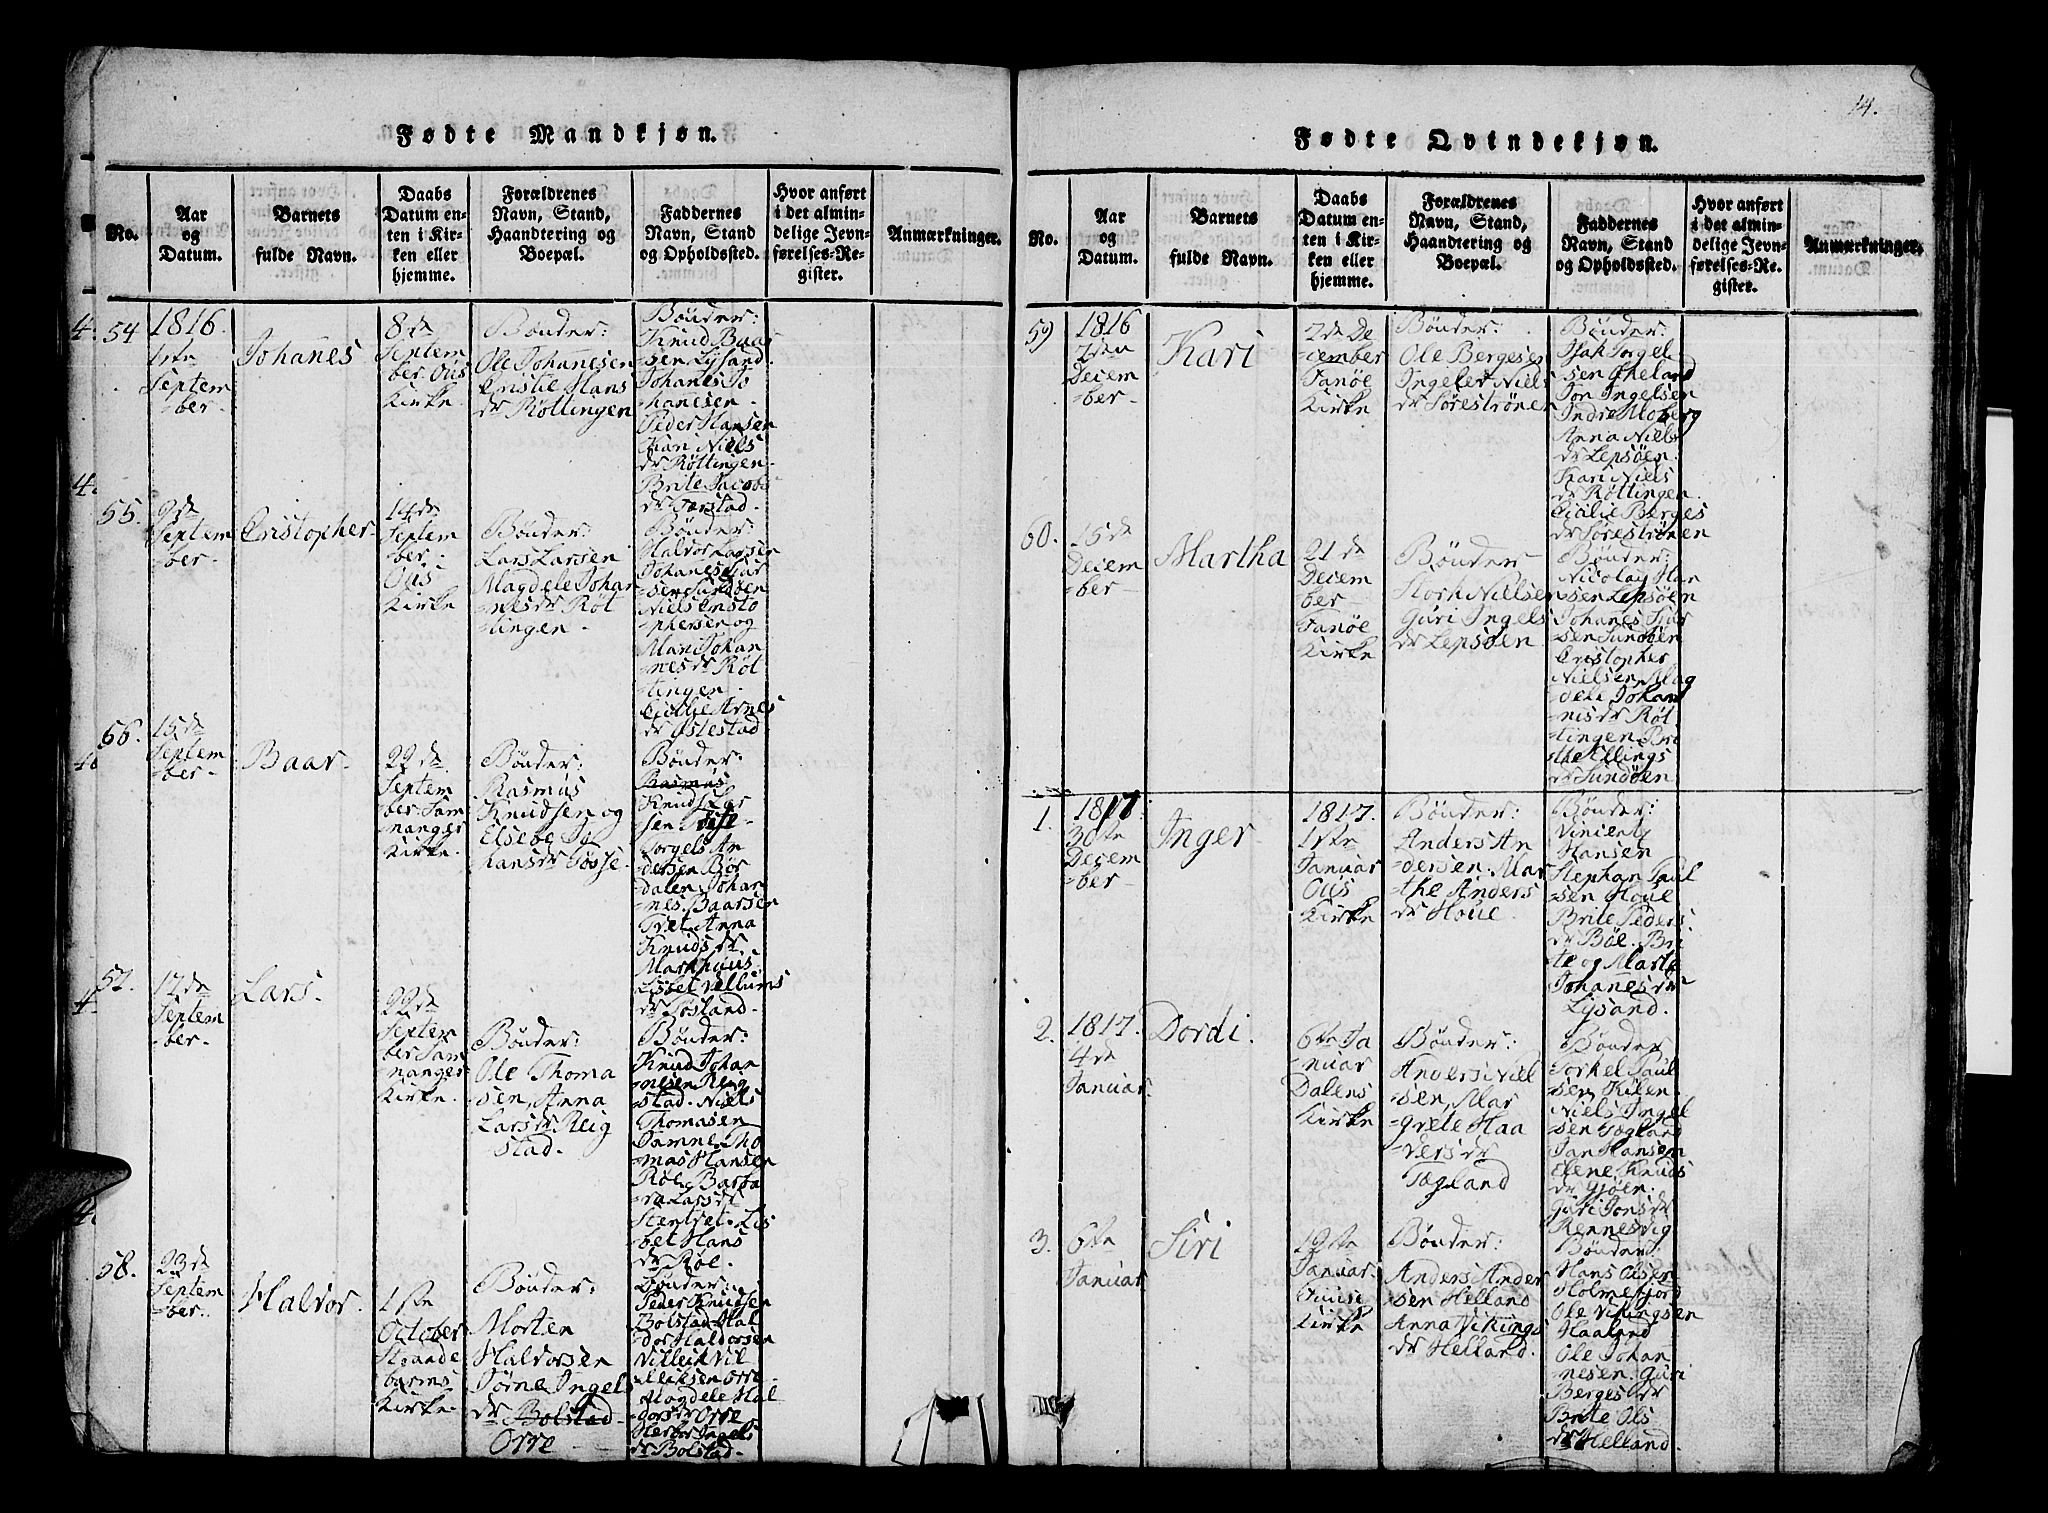 14.
Fødte Mandkjøn.
No.
Aar
og
Datum.
Barnets
fulde Navn.
Daabs
Datum en-
ten i Kir-
ken eller
hjemme.
Forældrenes
Navn, Stand,
Haandtering og
Boepæl.
Faddernes
Navn, Stand
og Opholdssted.
Hvor anført
i det almin-
delige Jevn-
førelses-Re-
gister.
Anmærkninger.
54
1816.
1ste
Septem
-ber.
Johanes
8de
Septem
ber. Ous
Kirke
Bønder:
Ole Johanesen
Cristie Hans
dr Røttingen
Bønder:
Knud Baar
sen Lysand
Johanes Jo
hanesen.
Peder Hansen
Kari Niels
dr Røttingen.
Brite Jacobs
dr Færstad.
55.
9de
Septem
-ber.
Cristopher.
14de
Septem
ber.
Ous
Kirke
Bønder:
Lars Larsen
Magdele Johan
-nesdr Røt
-tingen.
Bønder:
Halvor Larsen
Johanes Siur
-sen Sundøen
Niels Cristo
phersen og
Mari Johan
-nesdr Røt
tingen.
Cicilie Arnes
dr Østestad
56.
15de
Septem
-ber.
Baar.
22de
Septem
ber. Sam
nanger
Kirke.
Bønder:
Rasmus
Knudsen og
Elsebe Jo
hansdr Tøsse.
Bønder:
Knuds Lar
sen Tøsse
Torgels An
dersen Bør
dalen, Johan
-nes Baarsen
Tvet Anna
Knudsdr
Markhuus
Lisbet Vellums
dr Tøsland.
57.
17de
Septem
-ber.
Lars.
22de
Septem
ber Sam
nanger
Kirke.
Bønder:
Ole Thoma
sen, Anna
Larsdr Reig
-stad.
Bønder:
Knud Johan
-nesen Reig
stad. Niels
Thomasen
Tamne. Tho
-mas Hansen
Røe Barba
-ra Larsdr
Stentvet. Lis
bet Hans
dr Røe.
58.
23de
Septem
-ber.
Halvor.
1ste
October
Strande
barms
Kirke.
Bønder:
Morten
Halvorsen
Jørne Ingels
dr Bolstad.
Orre
Bønder
Peder Knudsen
Bolstad Hal
dor Haldorsen
Villeik Vil
-leiksen Orre
Magdele Hal
dorsdr Orre
Herbor Ingels
dr Bolstad.
Fødte Qvindekjøn.
No.
Aar
og
Datum.
Barnets
fulde Navn.
Daabs
Datum en-
ten i Kir-
ken eller
hjemme.
Forældrenes
Navn, Stand,
Haandtering og
Boepæl.
Faddernes
Navn, Stand
og Opholdssted.
Hvor anført
i det almin-
delige Jevn-
førelses-Re-
gister.
Anmærkninger.
59
1816
Decem
-ber
Kari
2de De
-cember
Fanøe
Kirke
Bønder:
Ole Bergesen
Ingeler Niels
dr Sørestrøner
Bønder:
Isak Torgel
sen Gheland
Jon Ingelsen
Indre Moberg
Anna Niels
dr Lepsøen.
Kari Niels
dr Røttingen.
Cicilie Berges
dr Sørestrønen
60.
15de
Decem
-ber
Martha
21de
Decem
ber
Fanøe
Kirke
Bønder
Stork Nielsen
Guri Ingels
dr Lepsøen.
Bønder:
Nicolay Han
sen Lepsøen
Johanes Siur
sen Sundøen
Cristopher
Nielsen, Mag
dele Johan
-nisdr Røt
-tingen Bri
the Ellings
dr Sundøen
1.
1817:
30te
Decem
-ber
Inger
1817.
1ste
Januar
Ous
Kirke
Bønder:
Anders An
-dersen. Mar
the Anders
dr Houe.
Bønder:
Vincenty
Hansen
Stephan Paul
sen Houe
Brite Peders
dr Bøe. Bri
te og Marte
Johanesdr
Lysand.
2.
1817.
4de
Januar.
Dordi.
6te Ja
nuar
Dalens
Kirke
Bønder:
Anders Niel
sen, Mar
grete Haa
-versdr
Tøgland
Bønder
Torkel Paul
sen Kilen
Niels Ingel
sen Tøgland
Jan Hansen
Elene Knuds
dr Gjøen.
Guri Jonsdr
Rennesvig
3.
6te
Januar
Siri
19te
Januar.
Guusi
Kirke
Bønder:
Anders Ander
sen Helland
Anna Vikings
dr Helland.
Bønder:
Hans Olsen
Holmefjord
Ole Vikingsen
Haaland
Ole Johan
nesen. Guri
Bergesdr
Brite Ols
dr Helland.